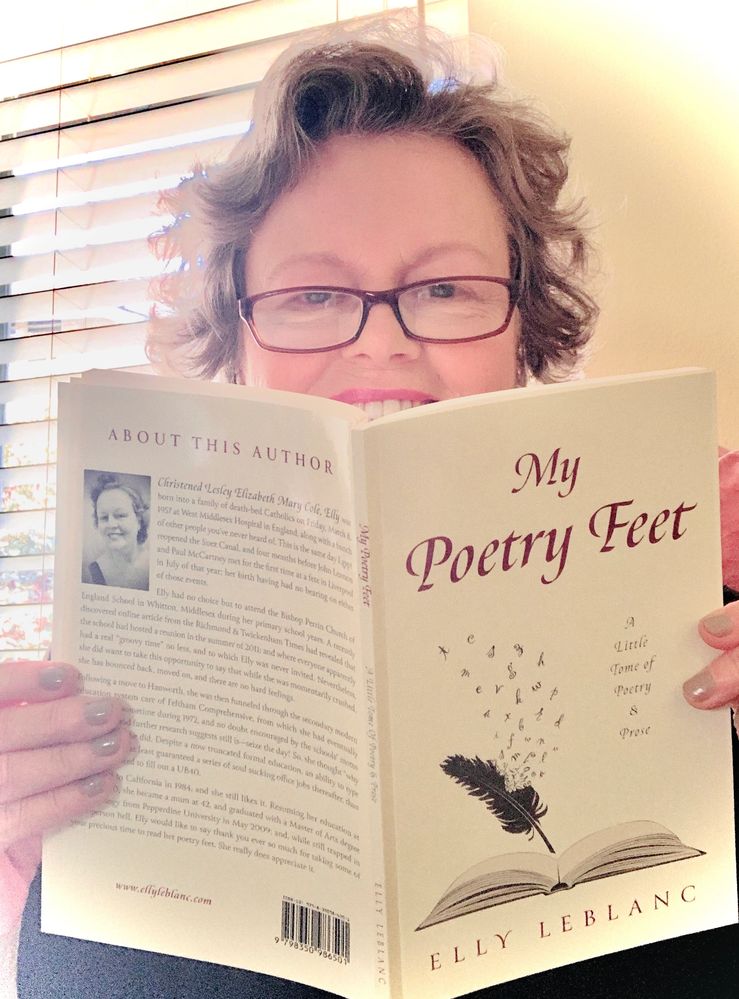 ABOUT THIS AUTHOR
Christened Lesley Elizabeth Mary Cole, Elly was
born into a family of death-bed Catholics on Friday, March 8,
1957 at West Middlesex Hospital in England, along with a bunch
of other people you've never heard of. This is the same day Egypt
reopened the Suez Canal, and four months before John Lennon
and Paul McCartney met for the first time at a fete in Liverpool
in July of that year; her birth having had no bearing on either
of those events.
Elly had no choice but to attend the Bishop Perrin Church of
England School in Whitton, Middlesex during her primary school years. A recently
discovered online article from the Richmond & Twickenham Times had revealed that
the school had hosted a reunion in the summer of 2011; and where everyone apparently
had a real "groovy time" no less, and to which Elly was never invited. Nevertheless,
she did want to take this opportunity to say that while she was momentarily crushed,
she has bounced back, moved on, and there are no hard feelings.
Following a move to Hanworth, she was then funneled through the secondary modern
education system care of Feltham Comprehensive, from which she had eventually
sometime during 1972, and no doubt encouraged by the schools' motto
further research suggests still is—seize the day! So, she thought "why
did. Despite a now truncated formal education, an ability to type
at least guaranteed a series of soul sucking office jobs thereafter, than
to fill out a UB40.
to California in 1984, and she still likes it. Resuming her education at
she became a mum at 42, and graduated with a Master of Arts degree
from Pepperdine University in May 2009; and, while still trapped in
person hell, Elly would like to say thank you ever so much for taking some of
your precious time to read her poetry feet. She really does appreciate it.
www.ellyleblanc.com
9 798350 986501
My Poetry Feet
A Little Tome Of Poetry & Prose
ELLY LEBLANC
My
Poetry Feet
A
Little
Tome of
Poetry
&
Prose
ELLY LEBLANC